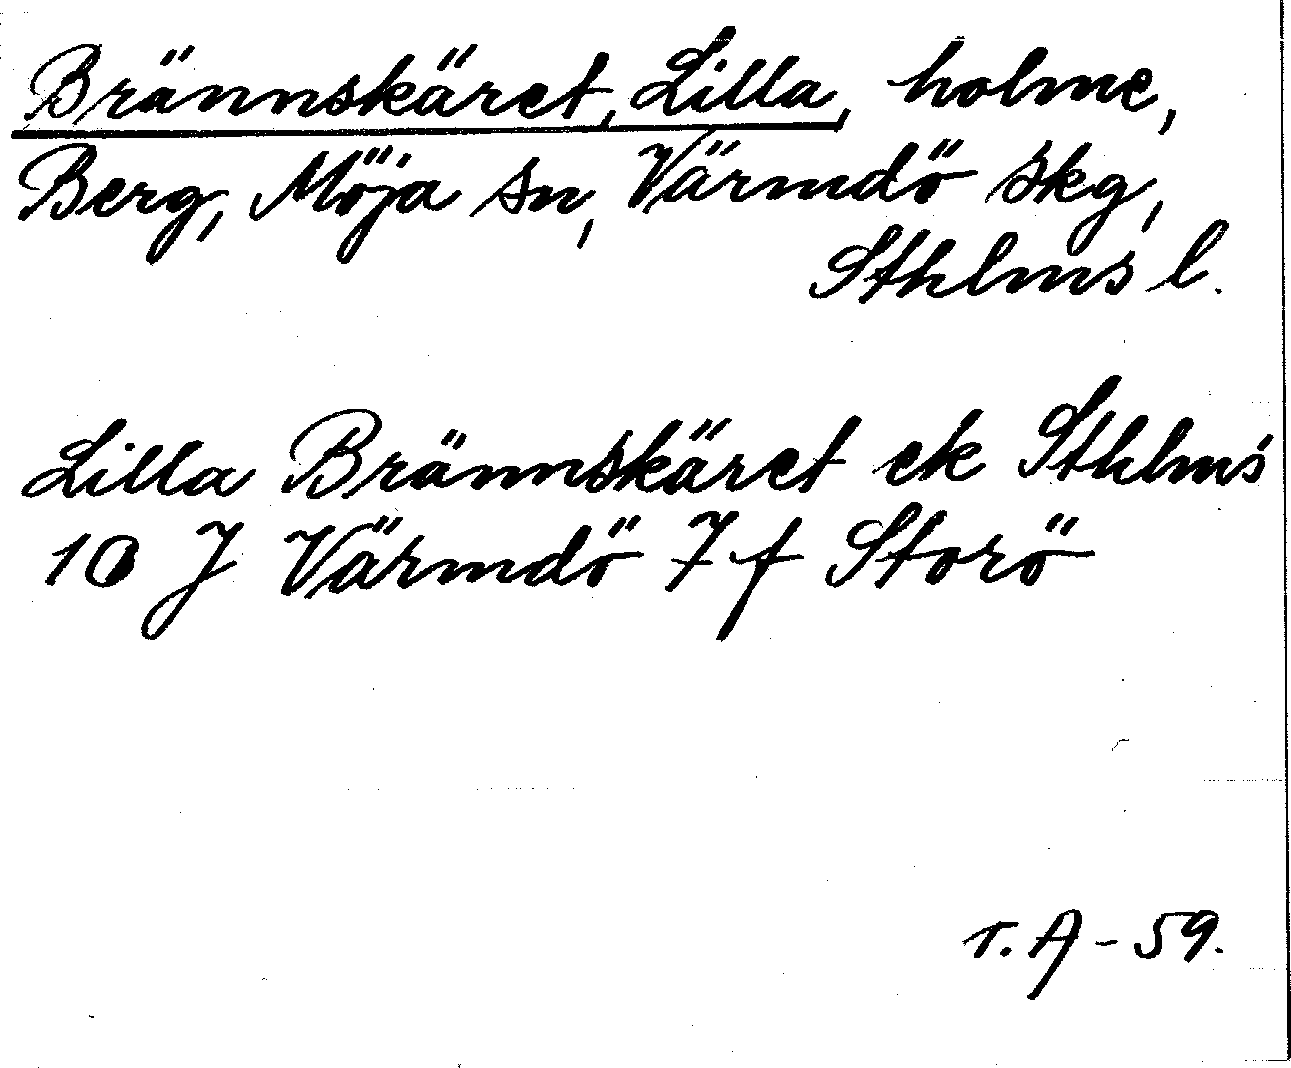 Brännskäret, Lilla, holme,
Berg, Möja sn, Värmdö skg,
Sthlms l.
Lilla Brännskäret ek Sthlms
10 J Värmdö 7 f Storö
r. A - 59.